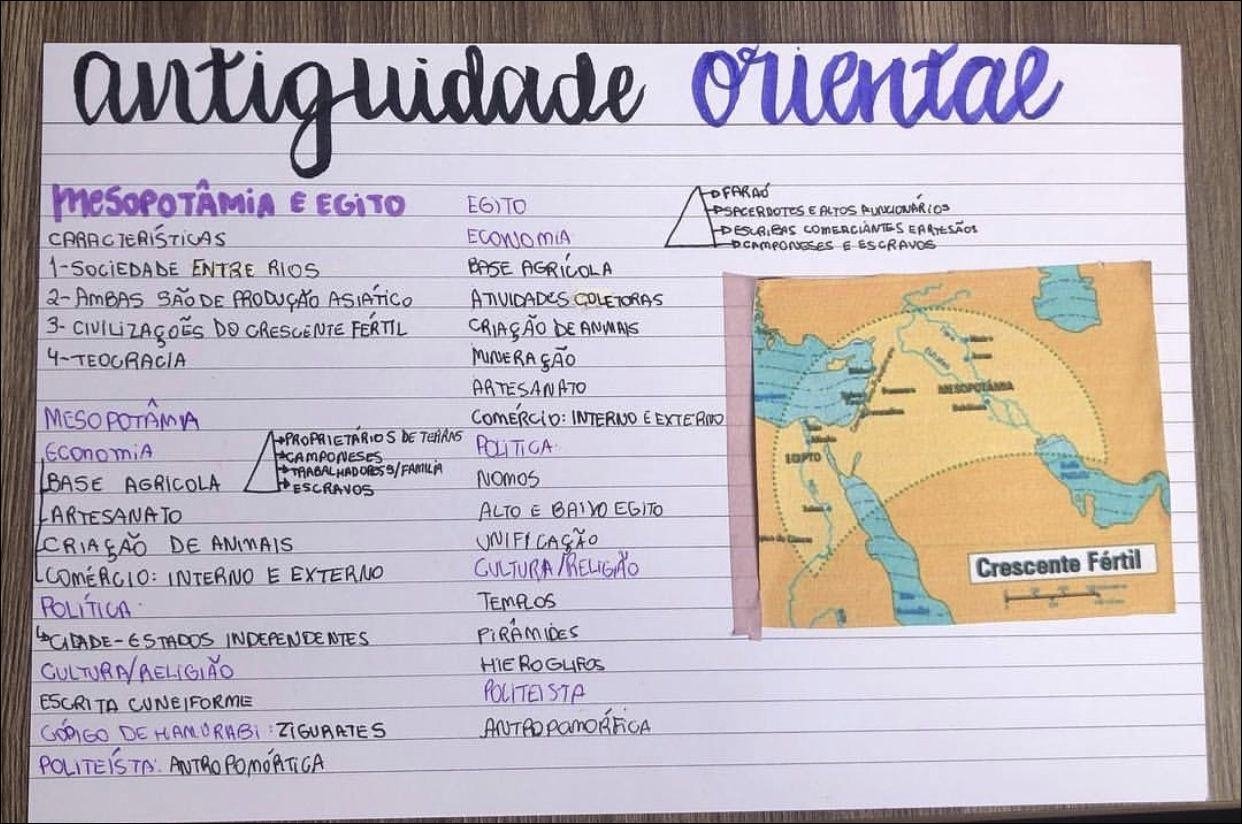 antiguidade oriental
MESOPOTÂMIA E EGITO
CARACTERÍSTICAS
1-SOCIEDADE ENTRE RIOS
2- AMBAS SÃO DE PRODUÇÃO ASIÁTICO
3- CIVILIZAÇÕES DO CRESCENTE FÉRTIL
4-TEOCRACIA
MESOPOTÂMIA
ECONOMIA
PROPRIETÁRIOS DE TERRAS
CAMPONESES
TRABALHADORES S/FAMÍLIA
ESCRAVOS
BASE AGRÍCOLA
ARTESANATO
CRIAÇÃO DE ANIMAIS
COMÉRCIO: INTERNO E EXTERNO
POLÍTICA:
CIDADE-ESTADOS INDEPENDENTES
CULTURA/RELIGIÃO
ESCRITA CUNEIFORME
CÓDIGO DE HAMURABI: ZIGURATES
POLITEÍSTA: ANTROPOMÓRTICA
EGITO
ECONOMIA
BASE AGRÍCOLA
ATIVIDADES COLETORAS
CRIAÇÃO DE ANIMAIS
MINERAÇÃO
ARTESANATO
COMÉRCIO: INTERNO E EXTERNO
POLÍTICA:
NOMOS
ALTO E BAIXO EGITO
UNIFICAÇÃO
CULTURA/RELIGIÃO
TEMPLOS
PIRÂMIDES
HIEROGLIFOS
POLITEISTA
ANTROPOMÓRFICA
FARAÓ
SACERDOTES E ALTOS FUNCIONÁRIOS
ESCRIBAS COMERCIANTES E ARTESÃOS
CAMPONESES E ESCRAVOS
MESOPOTÂMIA
EGIPTO
Crescente Fértil